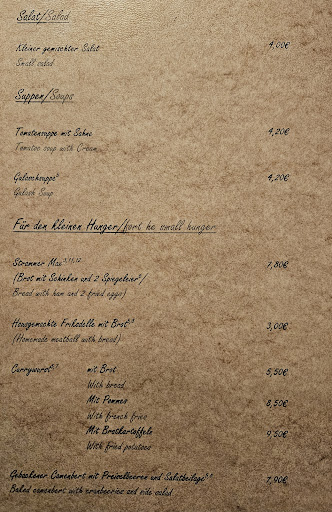 Salat/Salad
Kleiner gemischter Salat 4,00€
Small salad
Suppen/Soups
Tomatensuppe mit Sahne 4,20€
Tomatoe soup with Cream
Gulaschsuppe⁵ 4,20€
Gulash Soup
Für den kleinen Hunger/fort he small hunger
Strammer Max³,¹¹,¹² 7,80€
(Brot mit Schinken und 2 Spiegeleier/
Bread with ham and 2 fried eggs)
Hausgemachte Frikadelle mit Brot 3,00€
(Homemade meatball with bread)
Currywurst⁵,⁷ mit Brot 5,50€
With bread
Mit Pommes 8,50€
With french fries
Mit Bratkartoffeln 9,50€
With fried potatoes
Gebackener Camembert mit Preiselbeeren und Salatbeilage 7,90€
Baked camembert with cranberries and side salad